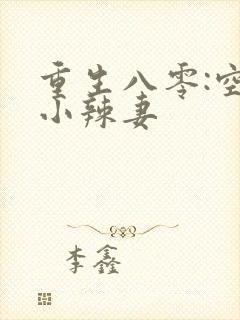 重生八零:空
小辣妻
李鑫